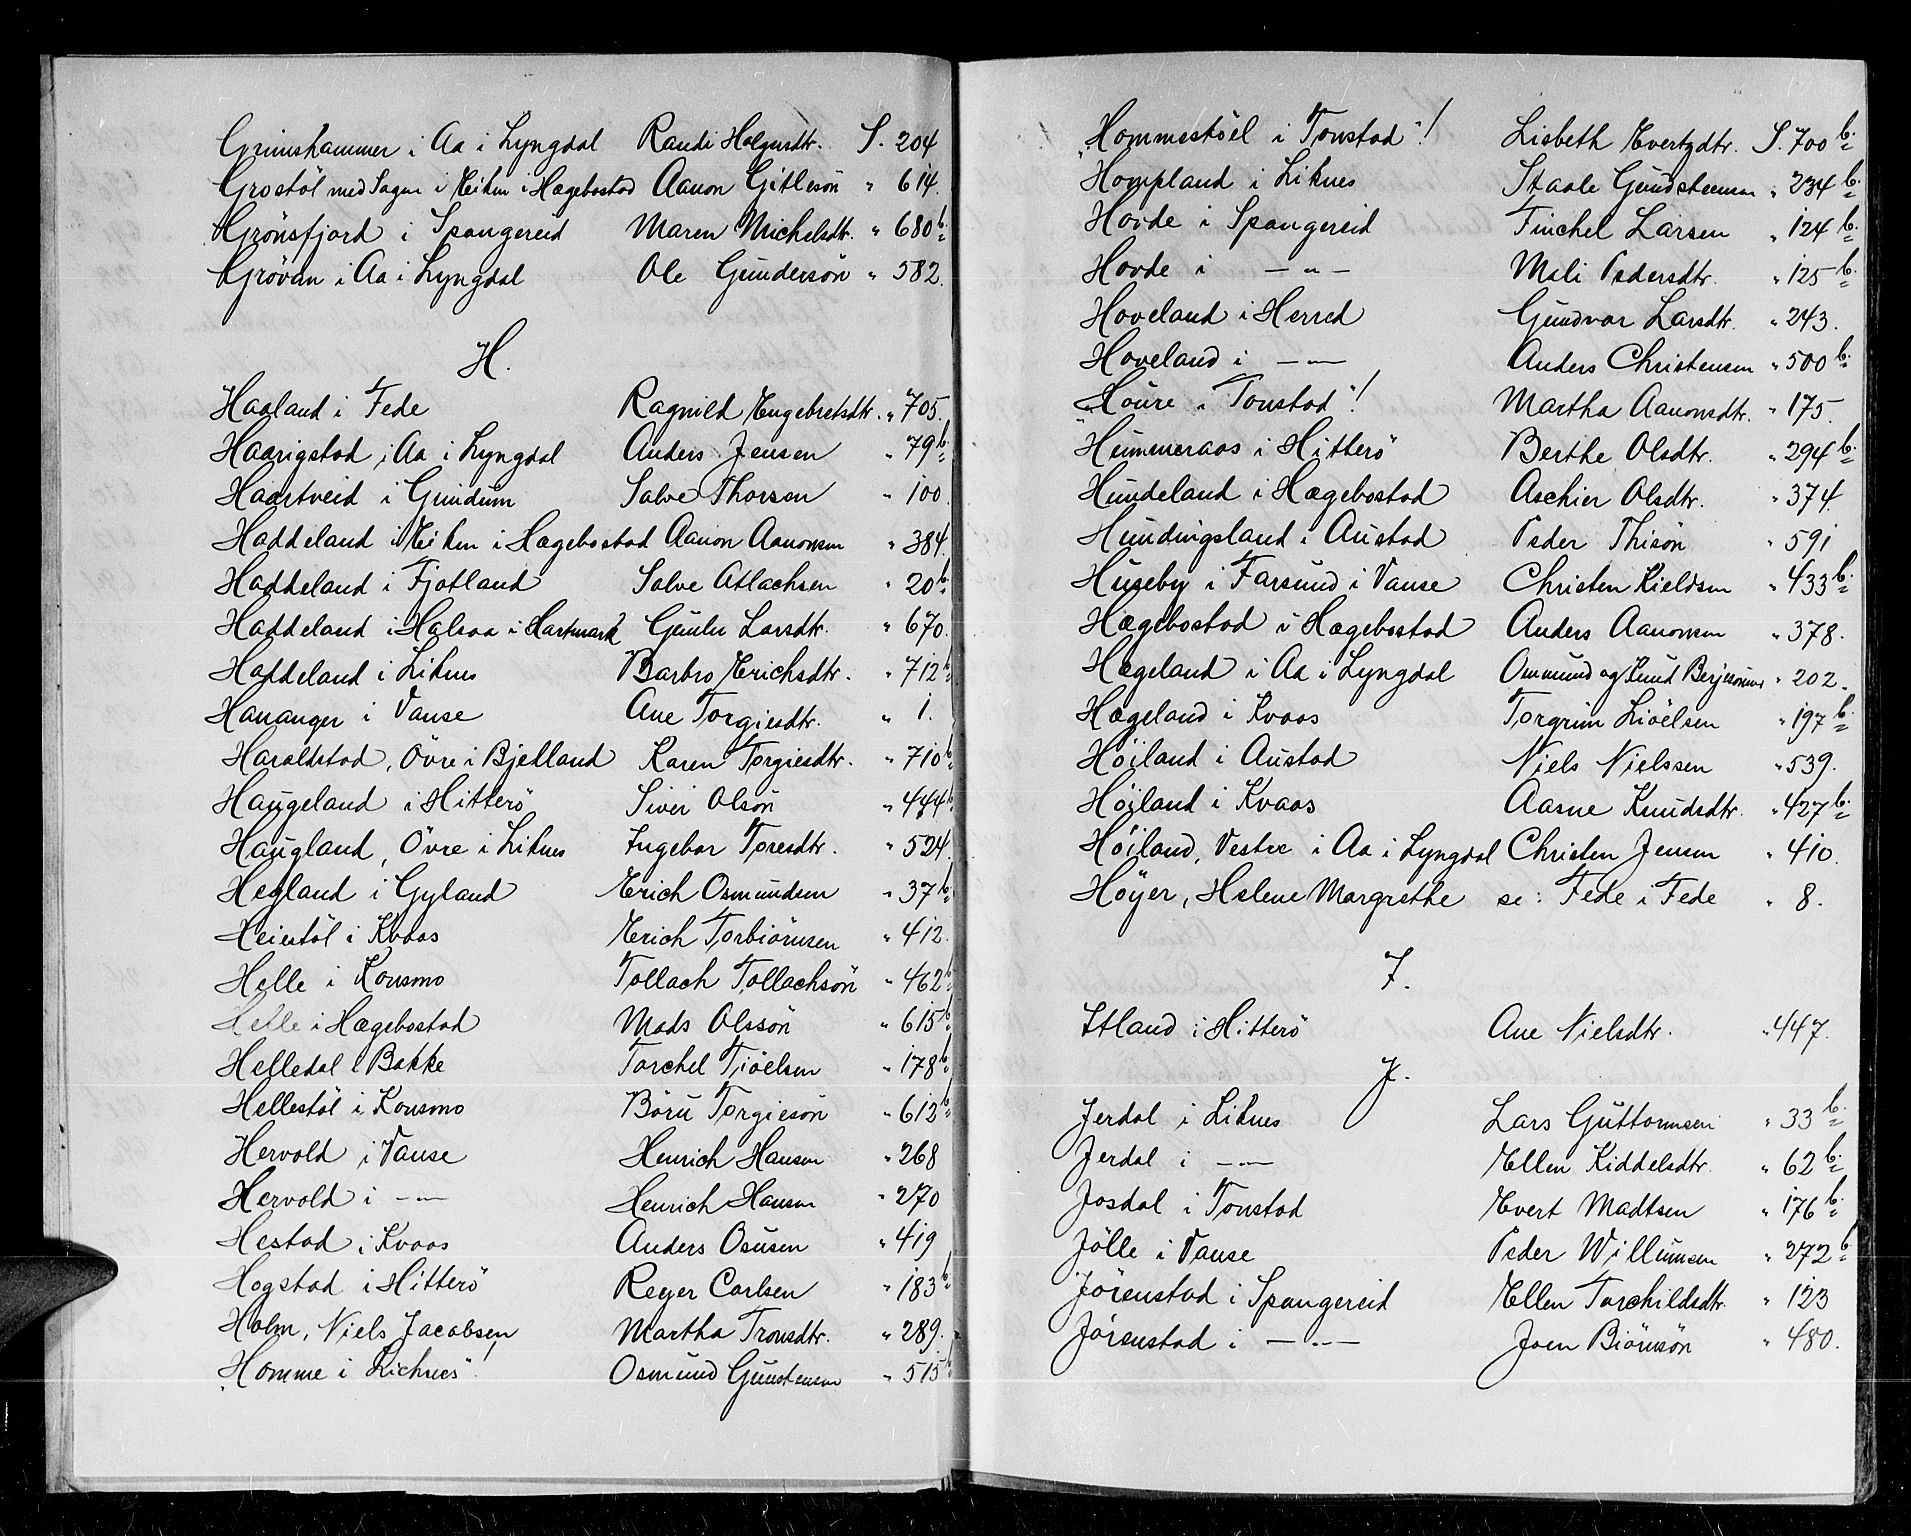 Grimshammer i Aa i Lyngdal Randi Holgersdtr. S. 204
Grostöl med Sagen i Eiken i Hægebostad Aanon Gitlesön " 614.
Grönsfjord i Spangereid Maren Michelsdtr. " 680 b.
Grövan i Aa i Lyngdal Ole Gundersön " 582.
H.
Haaland i Fede Ragnild Engebretsdtr. " 705.
Haarigstad i Aa i Lyngdal Anders Jensen " 79 b.
Haartveid i Grindum Salve Thorsen " 100.
Haddeland i Eiken i Hægebostad Aanon Aanonsen " 384.
Haddeland i Fjotland Salve Atlachsen " 20 b.
Haddeland i Halsaa i Hartmark? Larsdtr. " 670.
Haddeland i Liknes Barbro Erichsdtr. " 712 b
Hananger i Vanse Ane Torgiesdtr. " 1.
Haraldstad, Övre i Bjelland Karen Torgiesdtr. " 710 b
Haugeland i Hitterö Siveri Olsön " 444 b
Haugland, Övre i Liknes Ingebor Toresdtr. " 524.
Hegland i Gyland Erich Osmundsen " 37 b.
Heiestöl i Kvaas Erich Torbiörnsen " 412.
Helle i Konsmo Tollach Tollachsön " 462 b
Helle i Hægebostad Mads Olssön " 615 b
Helledal i Bakke Torchel Tiöelsen " 178 b
Hellestöl i Konsmo Böru Torgiesön " 612 b
Hervold i Vanse Henrich Hansen " 268
Hervold i — " — Henrich Hansen " 270
Hestad i Kvaas Anders Osusen " 419
Hogstad i Hitterö Reyer Carlsen " 183 b
Holm, Niels Jacobsen Martha Tronsdtr. " 289.
"Homme i Lichnes"! Osmund Gunstensen " 515 b
"Hommestöel i Tonstad"! Lisbeth Evertzdtr. S. 700 b.
Hompland i Liknes Staale Gundsteensen " 234 b.
Hovde i Spangereid Tinchel Larsen " 124 b.
Hovde i — " — Mali Pedersdtr. " 125 b.
Hoveland i Herred Gundvor Larsdtr. " 243.
Hoveland i — " — Anders Christensen " 500 b.
"Houre i Tonstad"! Martha Aanonsdtr. " 175.
Hummeraas i Hitterö Berthe Olsdtr. " 294 b.
Hundeland i Hægebostad Aschier Olsdtr. " 374.
Hundingsland i Austad Peder Thisön " 591
Huseby i Farsund i Vanse Christen Kieldsen " 433 b.
Hægebostad i Hægebostad Anders Aanonsen " 378.
Hægeland i Aa i Lyngdal Ommund og Knud Berjesønner " 202.
Hægeland i Kvaas Torgrim Liöelsen " 197 b.
Höiland i Austad Niels Nielssen " 539.
Höiland i Kvaas Aasne Knudsdtr. " 427 b.
Höiland, Vestre i Aa i Lyngdal Christen Jensen " 410.
Höyer, Helene Margrethe se: Fede i Fede " 8.
I.
Itland i Hitterö Ane Nielsdtr. " 447.
J.
Jerdal i Liknes Lars Guttormsen " 33 b.
Jerdal i — " — Ellen Kiddelsdtr. " 62 b.
Josdal i Tonstad Evert Madtsen " 176 b.
Jölle i Vanse Peder Willumsen " 272 b
Jörenstad i Spangereid Ellen Torchildsdtr. " 123
Jörenstad i — " — Joen Biörnsön " 480.